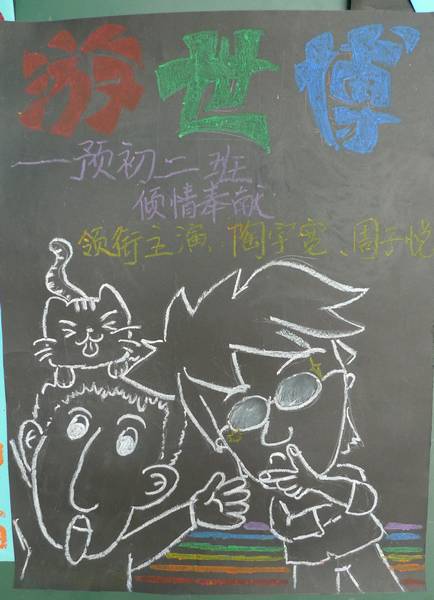 游世博
——预初二班
倾情奉献
领衔主演：陶宇宽、周子悦